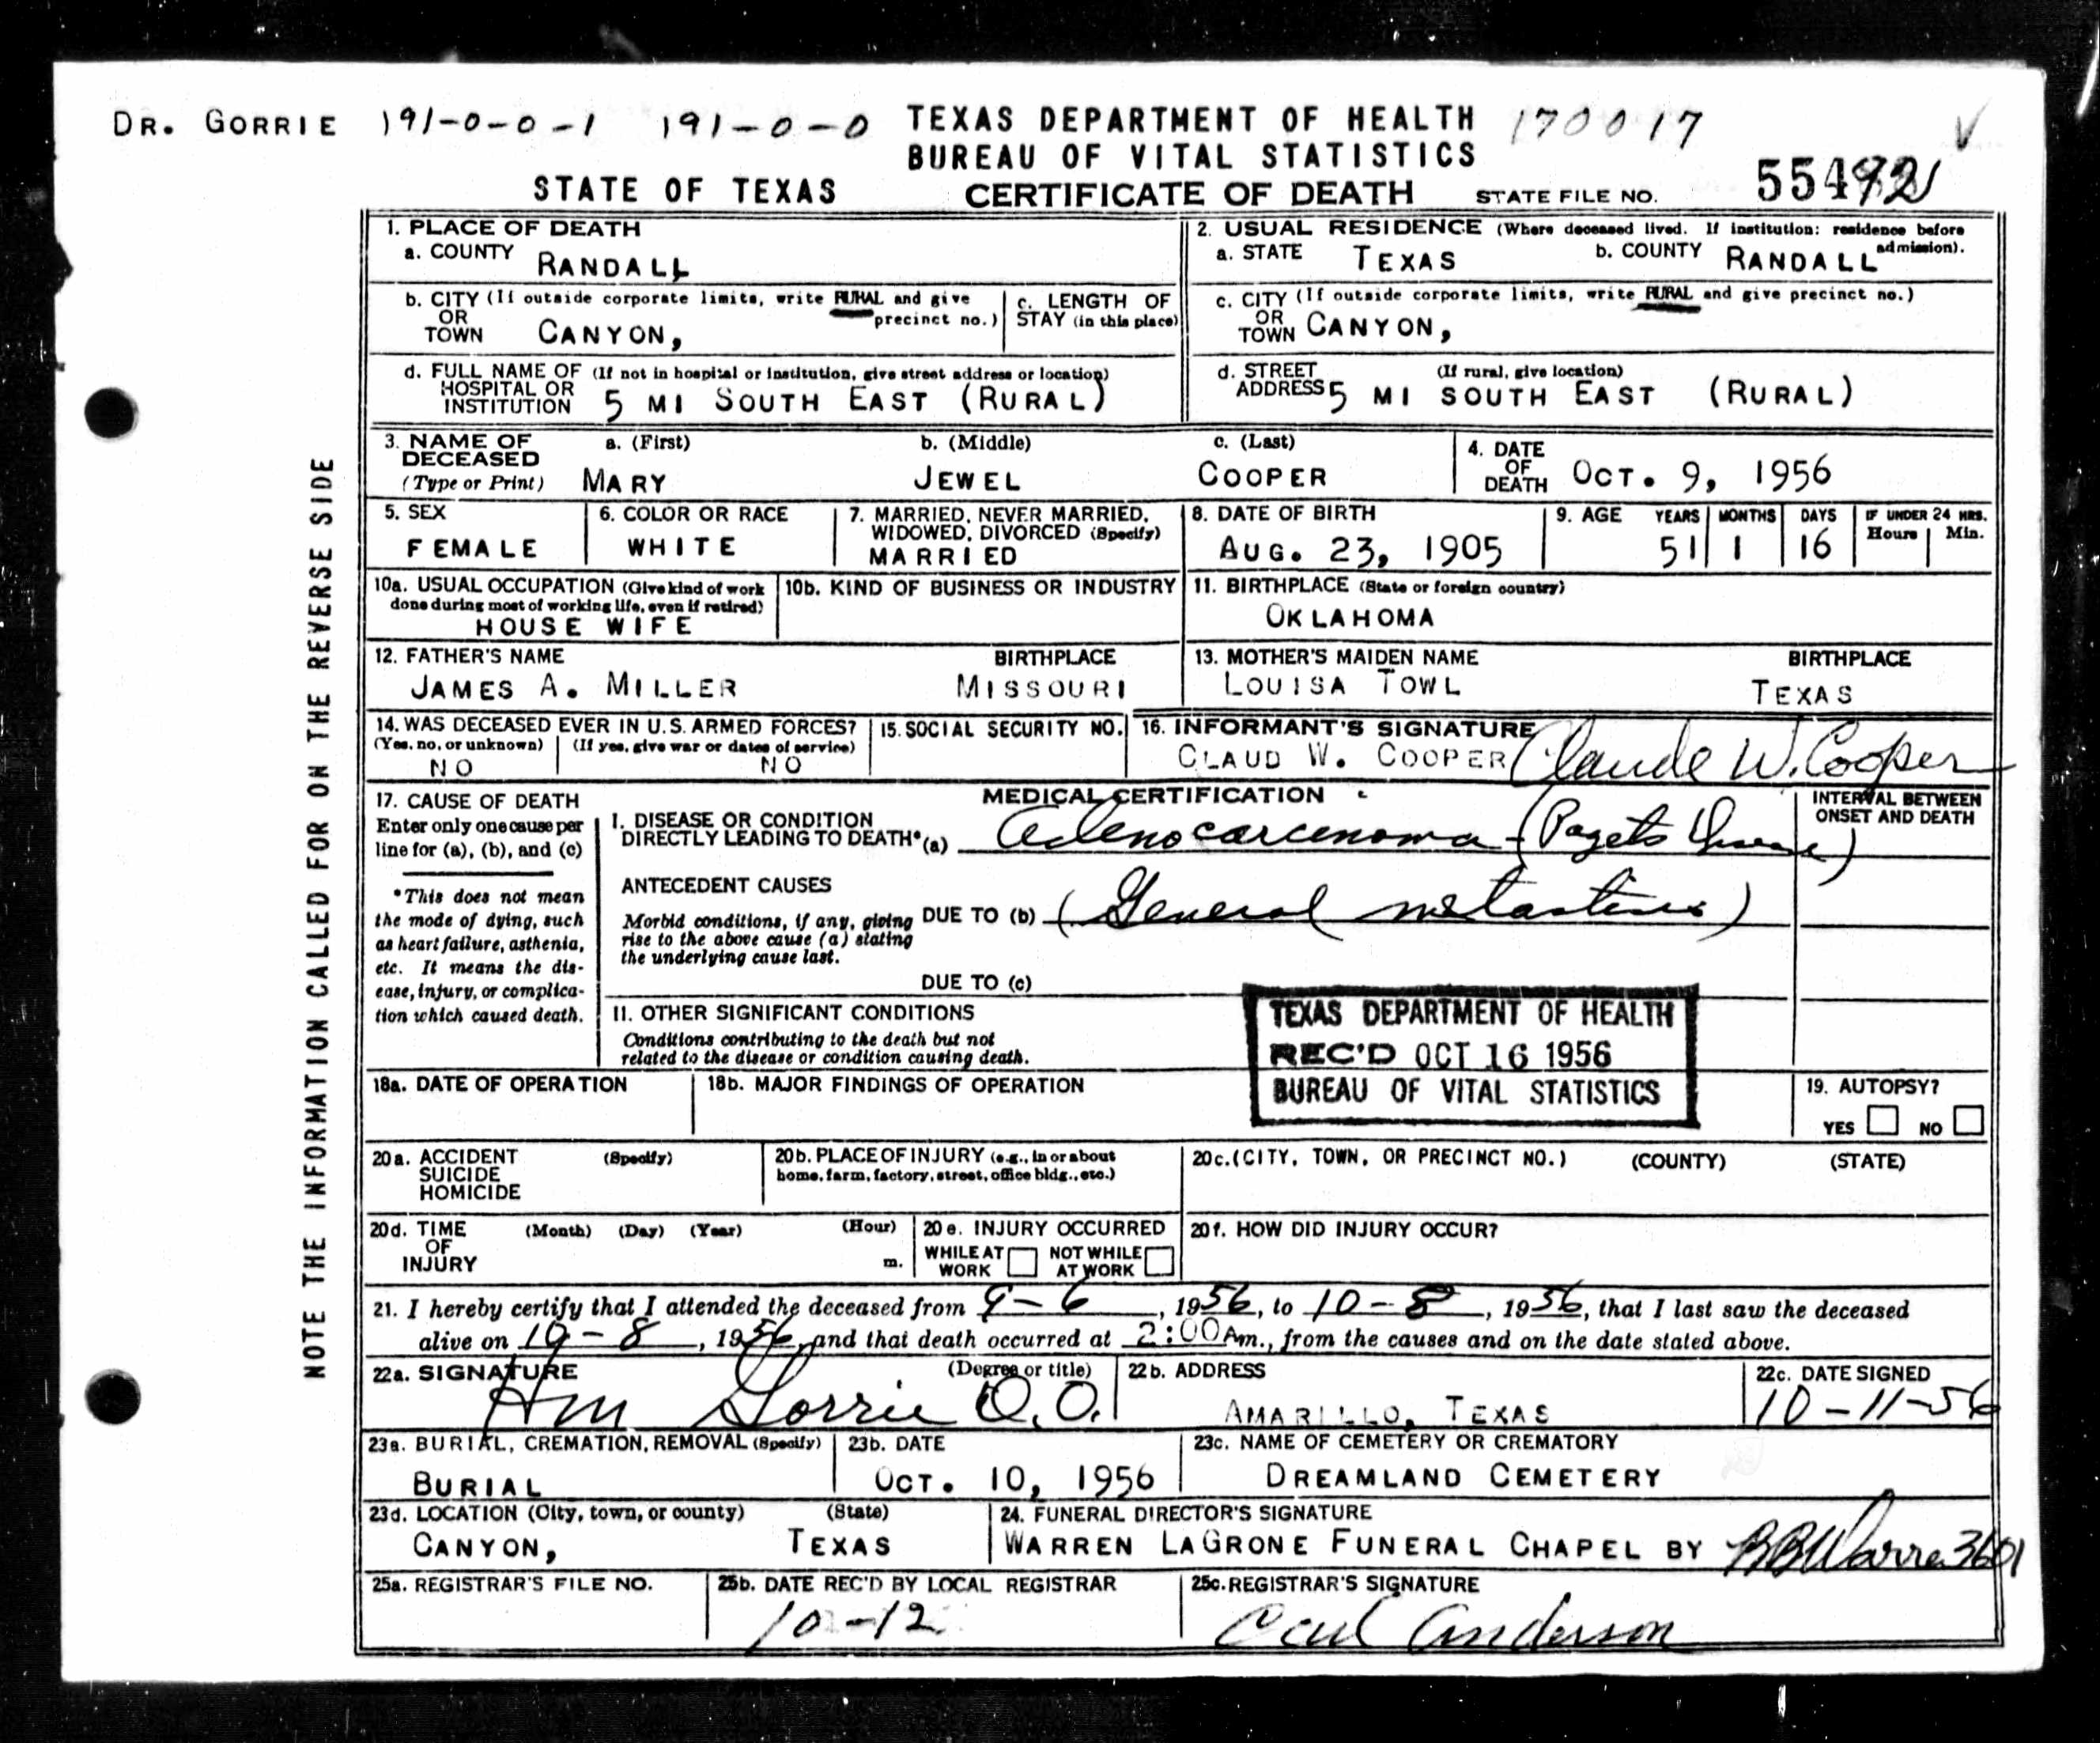 DR. GORRIE 191-0-0-1 191-0-0 TEXAS DEPARTMENT OF HEALTH 170017
BUREAU OF VITAL STATISTICS
STATE OF TEXAS CERTIFICATE OF DEATH STATE FILE NO. 55492
NOTE THE INFORMATION CALLED FOR ON THE REVERSE SIDE
1. PLACE OF DEATH
a. COUNTY RANDALL
2. USUAL RESIDENCE (Where deceased lived. If institution: residence before admission).
a. STATE TEXAS b. COUNTY RANDALL
b. CITY (If outside corporate limits, write RURAL and give precinct no.)
OR
TOWN CANYON,
c. LENGTH OF
STAY (in this place)
c. CITY (If outside corporate limits, write RURAL and give precinct no.)
OR
TOWN CANYON,
d. FULL NAME OF (If not in hospital or institution, give street address or location)
HOSPITAL OR
INSTITUTION 5 MI SOUTH EAST (RURAL)
d. STREET (If rural, give location)
ADDRESS 5 MI SOUTH EAST (RURAL)
3. NAME OF a. (First) b. (Middle) c. (Last)
DECEASED
(Type or Print) MARY JEWEL COOPER
4. DATE
OF
DEATH OCT. 9, 1956
5. SEX
FEMALE
6. COLOR OR RACE
WHITE
7. MARRIED, NEVER MARRIED,
WIDOWED, DIVORCED (Specify)
MARRIED
8. DATE OF BIRTH
AUG. 23, 1905
9. AGE YEARS MONTHS DAYS IF UNDER 24 HRS.
Hours Min.
51 1 16
10a. USUAL OCCUPATION (Give kind of work
done during most of working life, even if retired)
HOUSE WIFE
10b. KIND OF BUSINESS OR INDUSTRY
11. BIRTHPLACE (State or foreign country)
OKLAHOMA
12. FATHER'S NAME BIRTHPLACE
JAMES A. MILLER MISSOURI
13. MOTHER'S MAIDEN NAME BIRTHPLACE
LOUISA TOWL TEXAS
14. WAS DECEASED EVER IN U.S. ARMED FORCES?
(Yes, no, or unknown) (If yes, give war or dates of service)
NO NO
15. SOCIAL SECURITY NO.
16. INFORMANT'S SIGNATURE
CLAUD W. COOPER Claude W. Cooper
17. CAUSE OF DEATH
Enter only one cause per
line for (a), (b), and (c)
*This does not mean
the mode of dying, such
as heart failure, asthenia,
etc. It means the dis-
ease, injury, or complica-
tion which caused death.
MEDICAL CERTIFICATION
INTERVAL BETWEEN
ONSET AND DEATH
I. DISEASE OR CONDITION
DIRECTLY LEADING TO DEATH* (a) Adenocarcenoma (Pagets Disease)
ANTECEDENT CAUSES
Morbid conditions, if any, giving
rise to the above cause (a) stating
the underlying cause last.
DUE TO (b) (General metastises)
DUE TO (c)
II. OTHER SIGNIFICANT CONDITIONS
Conditions contributing to the death but not
related to the disease or condition causing death.
TEXAS DEPARTMENT OF HEALTH
REC'D OCT 16 1956
BUREAU OF VITAL STATISTICS
18a. DATE OF OPERATION
18b. MAJOR FINDINGS OF OPERATION
19. AUTOPSY?
YES NO
20a. ACCIDENT (Specify)
SUICIDE
HOMICIDE
20b. PLACE OF INJURY (e.g., in or about
home, farm, factory, street, office bldg., etc.)
20c. (CITY, TOWN, OR PRECINCT NO.) (COUNTY) (STATE)
20d. TIME (Month) (Day) (Year) (Hour)
OF
INJURY m.
20e. INJURY OCCURRED
WHILE AT WORK NOT WHILE AT WORK
20f. HOW DID INJURY OCCUR?
21. I hereby certify that I attended the deceased from 9-6, 1956, to 10-8, 1956, that I last saw the deceased
alive on 10-8, 1956, and that death occurred at 2:00 Am., from the causes and on the date stated above.
22a. SIGNATURE (Degree or title)
HM Gorrie D.O.
22b. ADDRESS
AMARILLO, TEXAS
22c. DATE SIGNED
10-11-56
23a. BURIAL, CREMATION, REMOVAL (Specify)
BURIAL
23b. DATE
OCT. 10, 1956
23c. NAME OF CEMETERY OR CREMATORY
DREAMLAND CEMETERY
23d. LOCATION (City, town, or county) (State)
CANYON, TEXAS
24. FUNERAL DIRECTOR'S SIGNATURE
WARREN LAGRONE FUNERAL CHAPEL BY BB Warren 3601
25a. REGISTRAR'S FILE NO.
25b. DATE REC'D BY LOCAL REGISTRAR
10-12
25c. REGISTRAR'S SIGNATURE
Carl Anderson